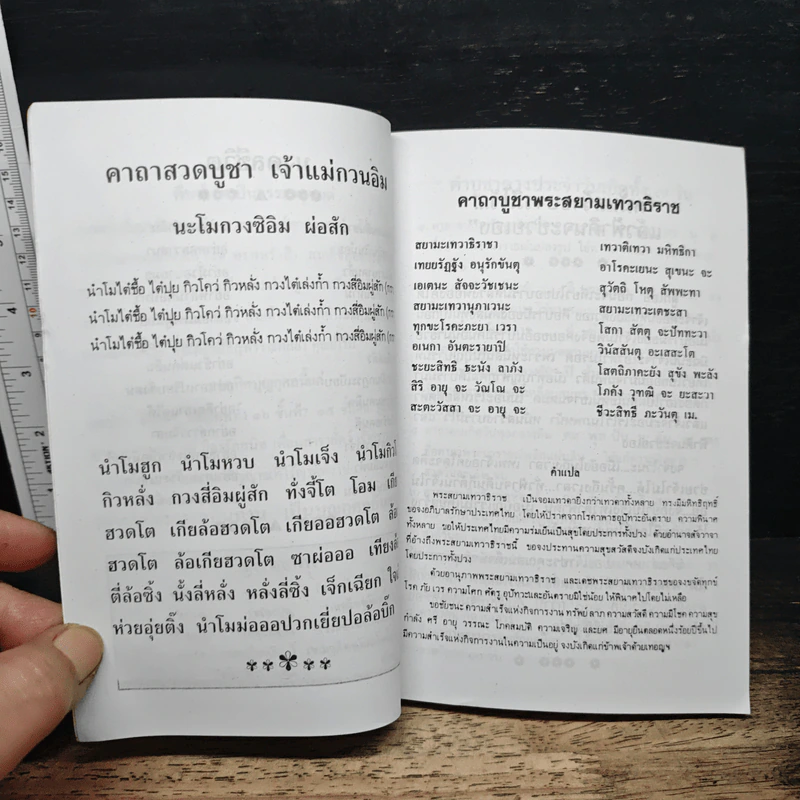 คาถาสวดบูชา เจ้าแม่กวนอิม
นะโมกวงซิอิม ผ่อสัก
นำโมไต๋ซื้อ ไต๋ปุย กิวโคว่ กิวหลั่ง กวงไต๋เล่งก้ำ กวงสีอิมผู่สัก
นำโมไต๋ซื้อ ไต๋ปุย กิวโคว่ กิวหลั่ง กวงไต๋เล่งก้ำ กวงสีอิมผู่สัก
นำโมไต๋ซื้อ ไต๋ปุย กิวโคว่ กิวหลั่ง กวงไต๋เล่งก้ำ กวงสีอิมผู่สัก
นำโมฮูก นำโมหวบ นำโมเจ็ง
กิวหลั่ง กวงสี่อิมผู่สัก ทั่งจี้โต โอม
ฮวดโต เกียล้อฮวดโต เกียออฮวดโต
ฮวดโต ล้อเกียฮวดโต ซาผ่อออ
ตี่ล้อซิ้ง นั้งลี่หลั่ง หลั่งลี่ซิ้ง เจ็กเฉียก
ห่วยอุ่ยติ๊ง นำโมม่อออปวกเยี่ยปอล้อบิ๊ก
คาถาบูชาพระสยามเทวาธิราช
สยามะเทวาธิราชา เทวาติเทวา มหิทธิกา
เทยยรัฏฐัง อนุรักขันตุ อาโรคะเยนะ สุเขนะ จะ
เอเตนะ สัจจะวัชเชนะ สุวัตถิ โหตุ สัพพะทา
สยามะเทวานุภาเวนะ สยามะเทวะเตชะสา
ทุกขะโรคะภะยา เวรา โสกา สัตตุ จะปัททะวา
อเนกา อันตะรายาปิ วินัสสันตุ อะเสสะโต
ชะยะสิทธิ ธะนัง ลาภัง โสตถิภาคะยัง สุขัง พะลัง
สิริ อายุ จะ วัณโณ จะ โภคัง วุฑฒิ จะ ยะสะวา
สะตะวัสสา จะ อายุ จะ ชีวะสิทธี ภะวันตุ เม.
คำแปล
พระสยามเทวาธิราช เป็นจอมเทวายิ่งกว่าเทวดาทั้งหลาย ทรงมีมหิทธิฤทธิ์
ขอจงอภิบาลรักษาประเทศไทย โดยให้ปราศจากโรคาพาธอุปัทวะอันตราย ความพินาศ
ทั้งหลาย ขอให้ประเทศไทยมีความร่มเย็นเป็นสุขโดยประการทั้งปวง ด้วยอำนาจสัจวาจา
ที่อ้างถึงพระสยามเทวาธิราชนี้ ขอจงประทานความสุขสวัสดีจงบังเกิดแก่ประเทศไทย
โดยประการทั้งปวง
ด้วยอานุภาพพระสยามเทวาธิราช และเดชพระสยามเทวาธิราชขอจงขจัดทุกข์
โรค ภัย เวร ความโศก ศัตรู อุปัทวะและอันตรายมิใช่น้อย ให้พินาศไปโดยไม่เหลือ
ขอชัยชนะ ความสำเร็จแห่งกิจการงาน ทรัพย์ ลาภ ความสวัสดี ความมีโชค ความสุข
กำลัง ศรี อายุ วรรณะ โภคสมบัติ ความเจริญ และยศ มีอายุยืนตลอดหนึ่งร้อยปีขึ้นไป
มีความสำเร็จแห่งกิจการงานในความเป็นอยู่ จงบังเกิดแก่ข้าพเจ้าด้วยเทอญฯ